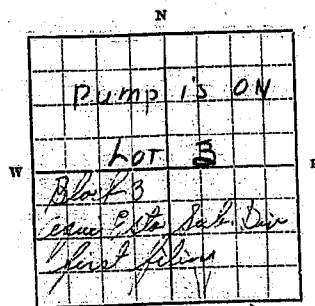 N
Pump is ON
LOT
W
E
Block 3
Sub. Div
first filing